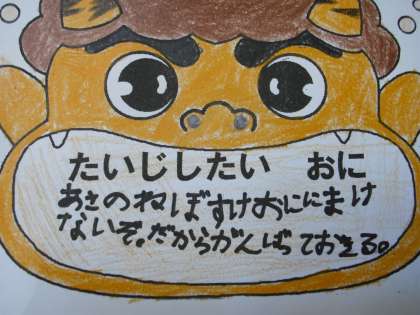 たいじしたい　おに
あさのねぼすけおににまけ
ないぞ。だからがんばっておきる。